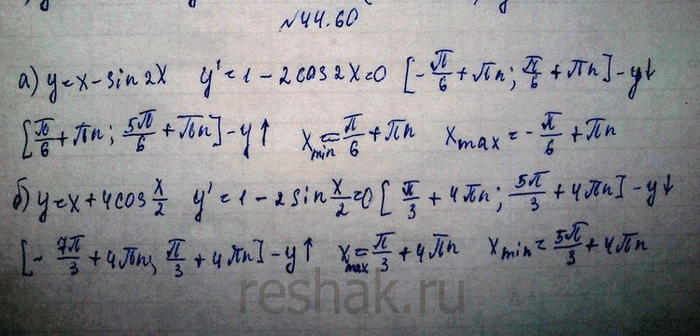 №44.60
а) y=x-sin2x y'=1-2cos2x=0 [-π/6+πn; π/6+πn]-y↓
[π/6+πn; 5π/6+πn]-y↑ x_min=π/6+πn x_max=-π/6+πn
б) y=x+4cos x/2 y'=1-2sin x/2=0 [π/3+4πn; 5π/3+4πn]-y↓
[-7π/3+4πn; π/3+4πn]-y↑ x_max=π/3+4πn x_min=5π/3+4πn
reshak.ru